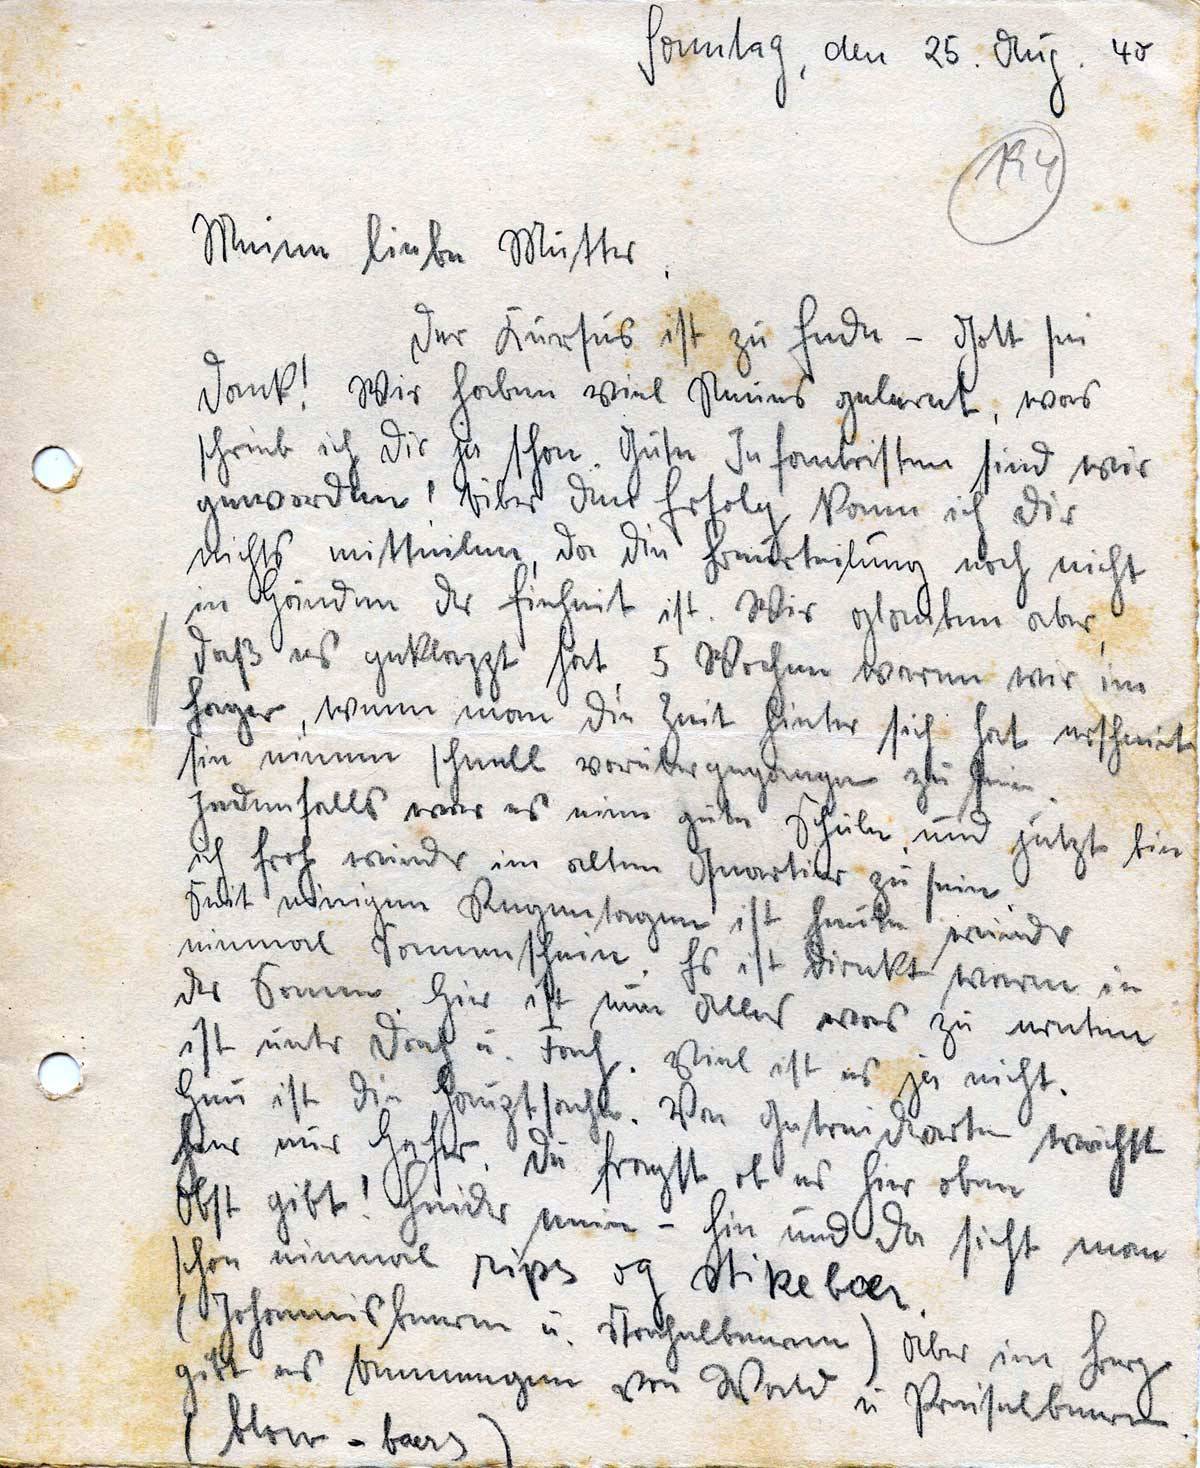 Sonntag, den 25. Aug. 40
194
Meine liebe Mutter,
Der Kursus ist zu Ende – Gott sei
Dank! Wir haben viel Neues gelernt, was
schrieb ich Dir ja schon. Gute Infantristen sind wir
geworden! Über den Erfolg kann ich Dir
nichts mitteilen, da die Beurteilung noch nicht
in Händen der Einheit ist. Wir glauben aber,
daß es geklappt hat. 5 Wochen waren wir im
Lager, wenn man die Zeit hinter sich hat erscheint
sie einem schnell vorübergegangen zu sein.
Jedenfalls war es eine gute Schule, und jetzt bin
ich froh wieder im alten Quartier zu sein.
Seit einigen Regentagen ist heute wieder
einmal Sonnenschein. Es ist direkt warm in
der Sonne. Hier ist nun Alles was zu ernten
ist unter Dach u. Fach. Viel ist es ja nicht.
Heu ist die Hauptsache. Von Getreidearten wächst
hier nur Hafer. Du fragst ob es hier oben
Obst gibt! Leider nein – hin und da sieht man
schon einmal rips og stikebær.
(Johannisbeeren u. Stachelbeeren) Aber im Berg
gibt es Unmengen von Wald u Preiselbeeren.
(blow-baers)